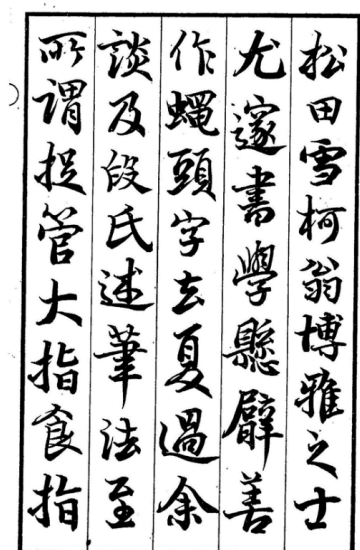 松田雪柯翁博雅之士
尤邃書學懸臂善
作蠅頭字去夏過余
談及段氏述筆法至
所謂捉管大指食指